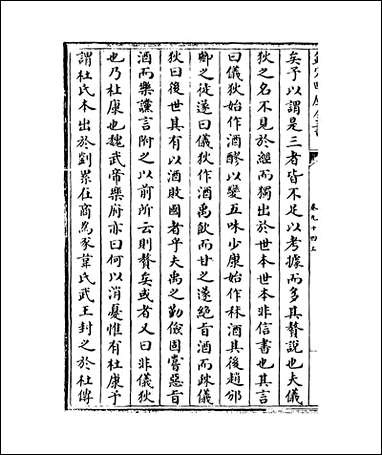 矣予以謂是三者皆不足以考據而多其贅說也夫儀
狄之名不見於經而獨出於世本世本非信書也其言
曰儀狄始作酒醪以變五味少康始作秫酒其後趙邠
卿之徒遂曰儀狄作酒禹飲而甘之遂絶旨酒而疎儀
狄曰後世其有以酒敗國者乎夫禹之勤儉固嘗惡旨
酒而樂讜言附之以前所云則贅矣或者又曰非儀狄
也乃杜康也魏武帝樂府亦曰何以消憂惟有杜康予
謂杜氏本出於劉累在商為豕韋氏武王封之於杜傳
卷九十四上